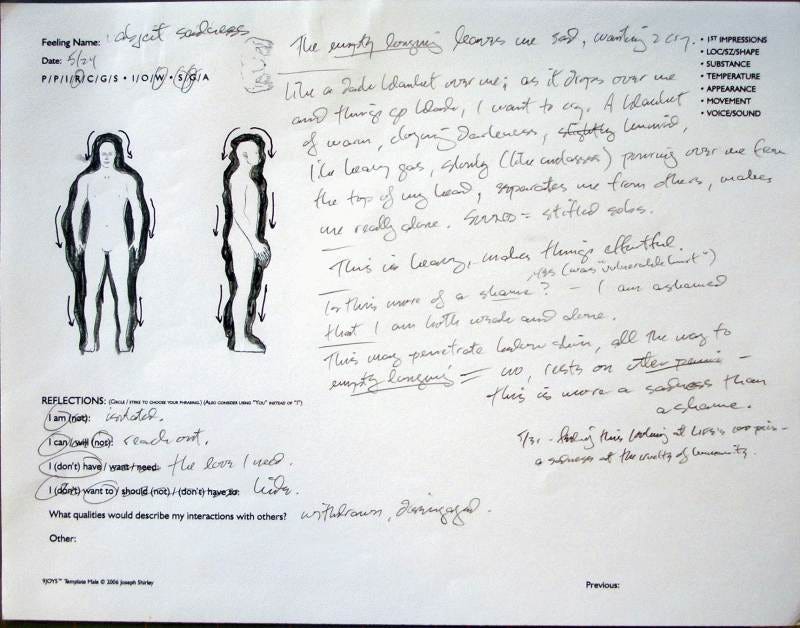 Feeling Name: abject sadness
Date: 5/24
P/P/I/R/C/G/S • I/O/W • S/G/A
The empty longing leaves me sad, wanting 2 cry.
Like a dark blanket over me; as it drops over me
and things go black, I want to cry. A blanket
of warm, cloying darkness, slightly humid,
like heavy gas, slowly (like molasses) pouring over me from
the top of my head, separates me from others, makes
me really alone. Sound = stifled sobs.
This is heavy, makes things effortful.
yes (was "vulnerable hurt")
Is this more of a shame? – I am ashamed
that I am both weak and alone.
This may penetrate below skin, all the way to
empty longing = no, rests on other –
this is more a sadness than
a shame.
5/31 - feeling this looking at
a sadness at the cruelty of humanity.
• 1ST IMPRESSIONS
• LOC/SZ/SHAPE
• SUBSTANCE
• TEMPERATURE
• APPEARANCE
• MOVEMENT
• VOICE/SOUND
REFLECTIONS: (CIRCLE / STRIKE TO CHOOSE YOUR PHRASING.) (ALSO CONSIDER USING "YOU" INSTEAD OF "I")
I am (not): isolated.
I can / will (not): reach out.
I (don't) have / want / need: the love I need.
I (don't) want to / should (not) / (don't) have to: hide.
What qualities would describe my interactions with others? withdrawn, disengaged.
Other:
9JOYS™ Template Male © 2006 Joseph Shirley
Previous: